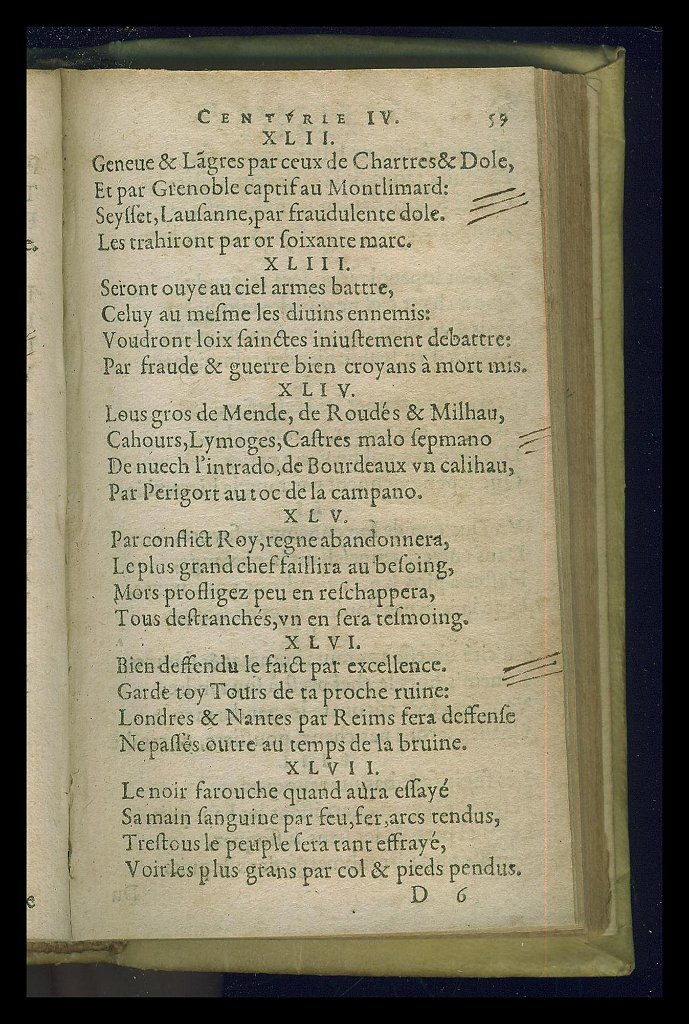 CENTVRIE IV. 59
XLII.
Geneue & Lãgres par ceux de Chartres & Dole,
Et par Grenoble captif au Montlimard:
Seyſſet, Lauſanne, par fraudulente dole.
Les trahiront par or ſoixante marc.
XLIII.
Seront ouye au ciel armes battre,
Celuy au meſme les diuins ennemis:
Voudront loix ſainctes iniuſtement debattre:
Par fraude & guerre bien croyans à mort mis.
XLIV.
Lous gros de Mende, de Roudés & Milhau,
Cahours, Lymoges, Caſtres malo ſepmano
De nuech l'intrado, de Bourdeaux vn calihau,
Par Perigort au toc de la campano.
XLV.
Par conflict Roy, regne abandonnera,
Le plus grand chef faillira au beſoing,
Mors profligez peu en reſchappera,
Tous deſtranchés, vn en ſera teſmoing.
XLVI.
Bien deffendu le faict par excellence.
Garde toy Tours de ta proche ruine:
Londres & Nantes par Reims fera deffenſe
Ne paſſés outre au temps de la bruine.
XLVII.
Le noir farouche quand aura eſſayé
Sa main ſanguine par feu, fer, arcs tendus,
Treſtous le peuple ſera tant effrayé,
Voir les plus grans par col & pieds pendus.
D 6